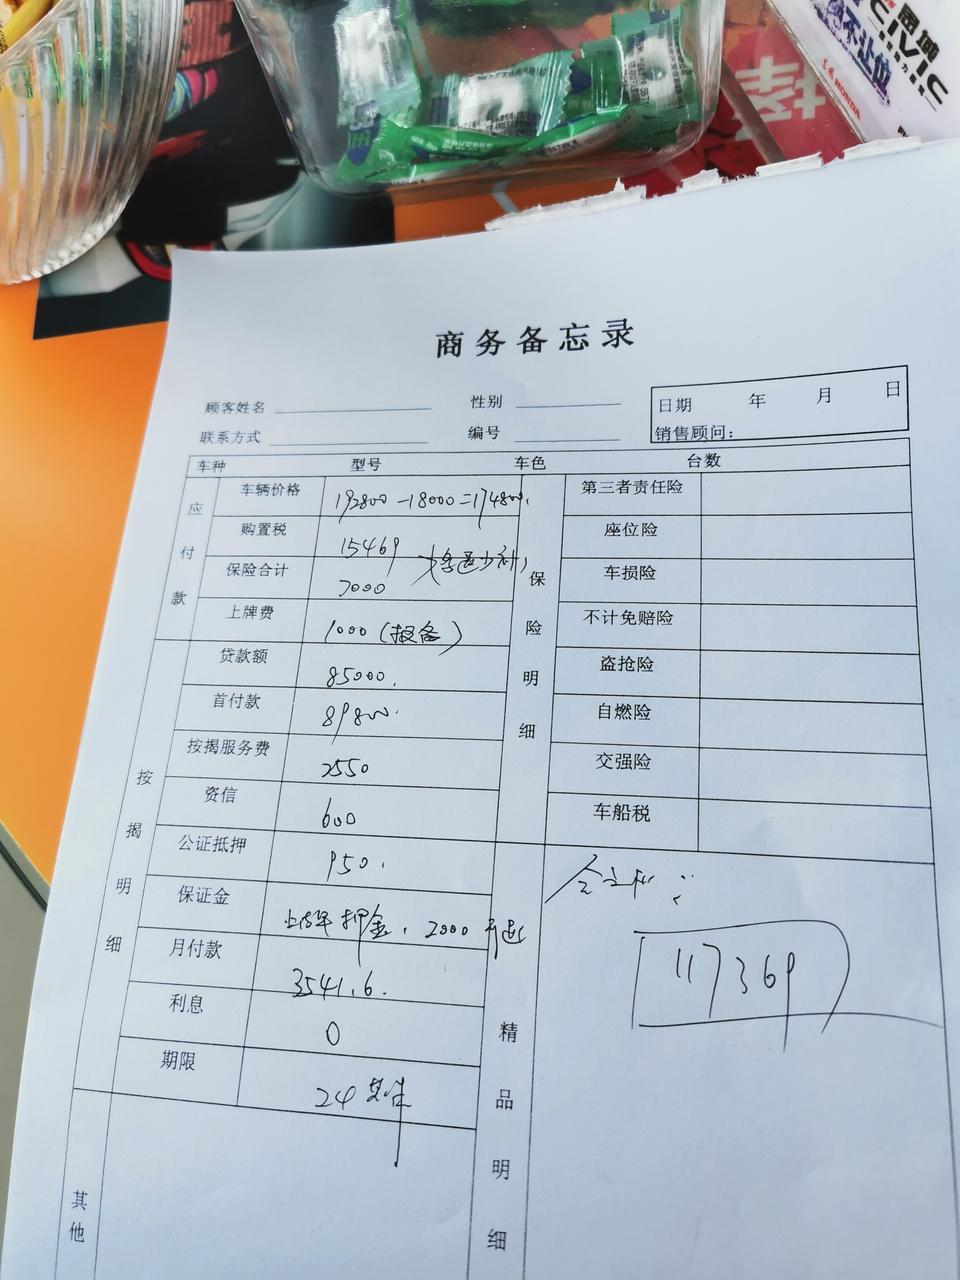 思域
CIVIC
不让位
HONDA
商务备忘录
顾客姓名 性别 日期 年 月 日
联系方式 编号 销售顾问：
车种 型号 车色 台数
应付款
车辆价格 192800-18000=174800.
购置税 15469
保险合计 7000 (多退少补)
上牌费 1000 (报备)
按揭明细
贷款额 85000.
首付款 89800.
按揭服务费 2550
资信 600
公证抵押 950.
保证金 上牌 押金. 2000 可退
月付款 3541.6.
利息 0
期限 24
其他
保险明细
第三者责任险
座位险
车损险
不计免赔险
盗抢险
自燃险
交强险
车船税
精品明细
117369